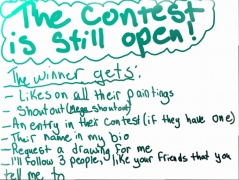 The Contest
is still open!
The winner gets:
- Likes on all their paintings
- Shoutout (Mega shoutout)
- An entry in their contest (if they have one)
- Their name in my bio
- Request a drawing for me
- I'll follow 3 people, like your friends that you
tell me to